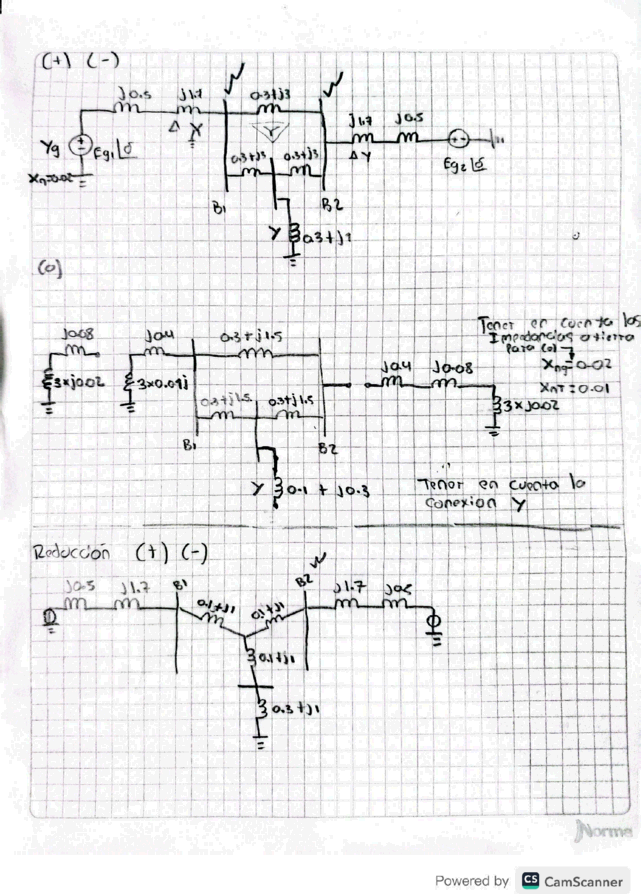 (+) (-)
j0.5 j1.7 0.3+j3
Δ Y Y j1.7 j0.5
Yg Eg1 Lδ 0.3+j3 0.3+j3 Δ Y Eg2 Lδ
Xn=0.02
B1 Y B2
0.3+j1
(0)
j0.08 j0.4 0.3+j1.5
3xj0.02 3x0.01j
0.3+j1.5 0.3+j1.5
B1 B2
Y 0.1 + j0.3
Tener en cuenta las
Impedancias a tierra
Para (0)
Xng=0.02
XnT=0.01
j0.4 j0.08
3xj0.02
Tener en cuenta la
conexion Y
Reducción (+) (-)
j0.5 j1.7 B1 0.1+j1 0.1+j1 B2 j1.7
0.1+j1
0.3+j1
Norma
Powered by CS CamScanner